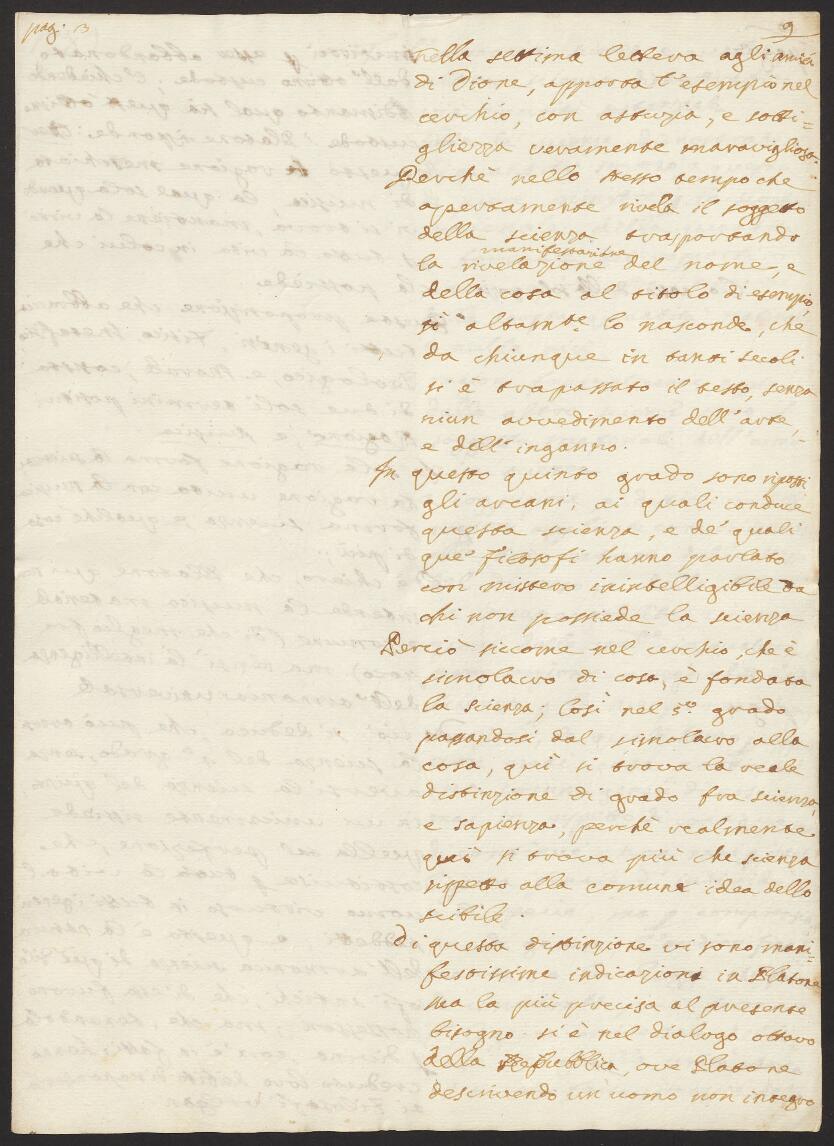 pag. 13
9
nella settima lettera agli amici
di Dione, apporta l'esempio nel
cerchio, con astuzia, e sotti=
gliezza veramente maravigliosa.
Perchè nello stesso tempo che
apertamente rivela il soggetto
della scienza trasportando
manifestazione
la rivelazione del nome, e
della cosa al titolo di esempio
sì altamte lo nasconde, che
da chiunque in tanti secoli
si è trapassato il testo, senza
niun avvedimento dell'arte,
e dell'inganno.
In questo quinto grado sono riposti
gli arcani, ai quali conduce
questa scienza, e de' quali
que' Filosofi hanno parlato
con mistero inintelligibile da
chi non possiede la scienza
Perciò siccome nel cerchio, che è
simolacro di cosa, è fondata
la scienza; Così nel 5º grado
passandosi dal simolacro alla
cosa, quì si trova la reale
distinzione di grado fra scienza,
e sapienza, perchè realmente
quì si trova più che scienza
rispetto alla comune idea dello
scibile.
Di questa distinzione vi sono mani=
festissime indicazioni in Platone
Ma la più precisa al presente
bisogno si è nel dialogo ottavo
della Repubblica, ove Platone
descrivendo un'uomo non integro